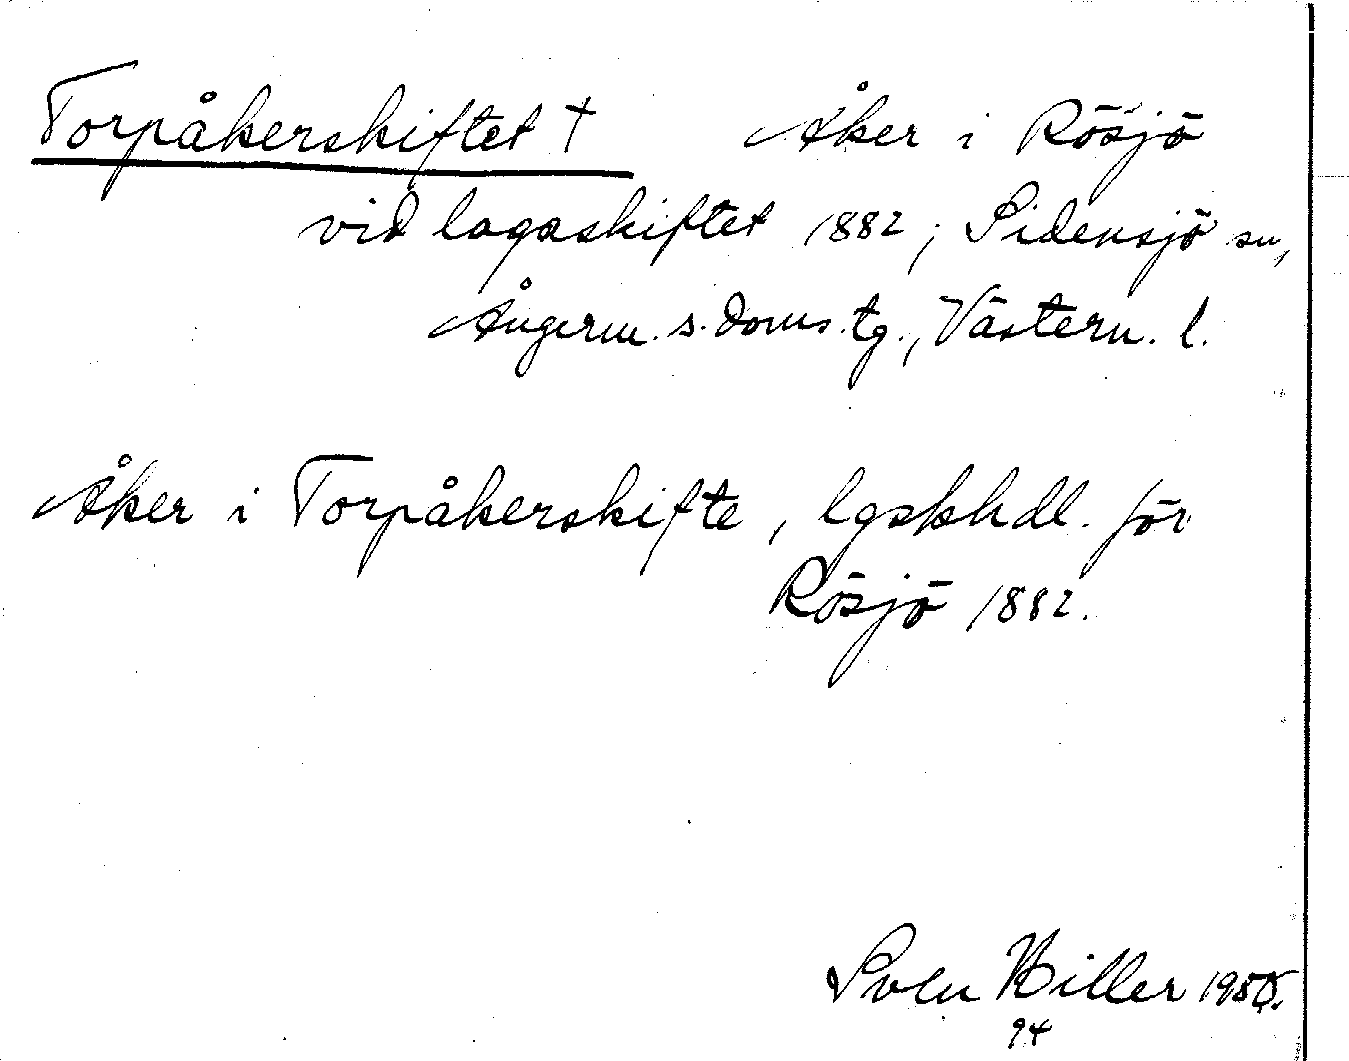 Torpåkerskiftet † Åker i Rösjö
vid lagaskiftet 1882; Sidensjö sn,
Ångerm. s. doms. tg., Västern. l.
Åker i Torpåkerskifte, lgskhdl. för
Rösjö 1882.
Sven Hiller
94